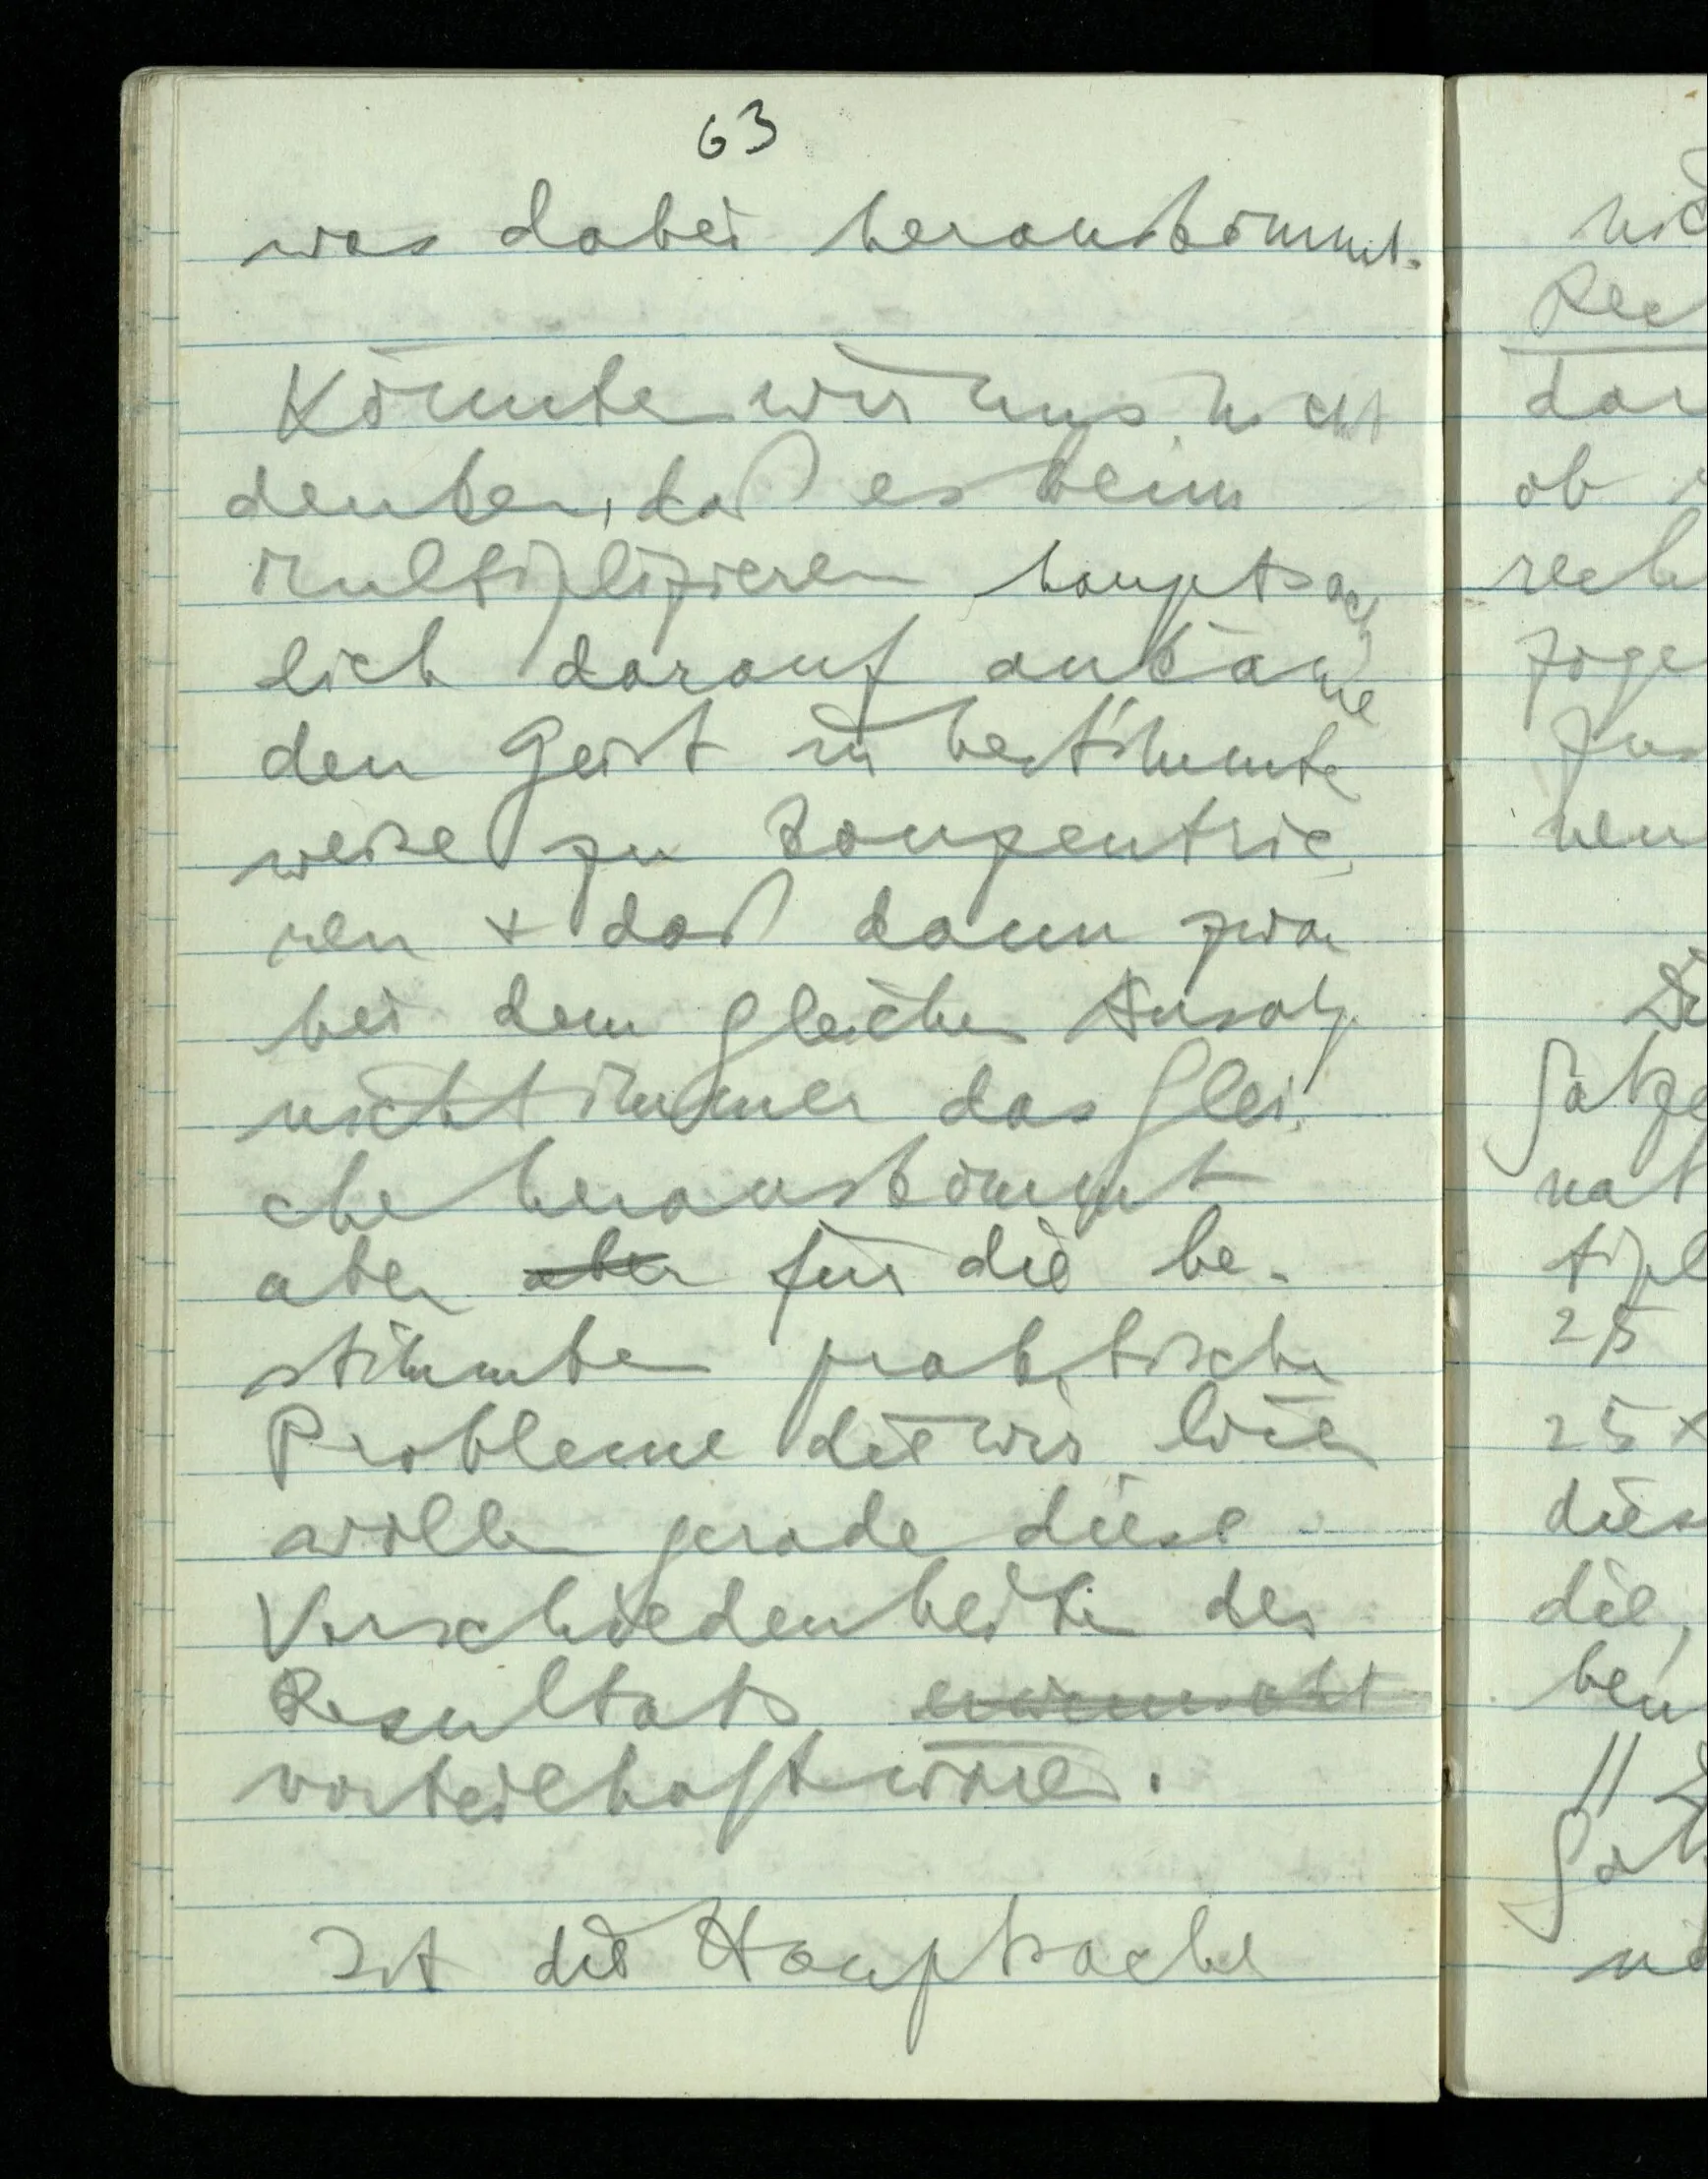 63
was dabei herauskommt.
Könnten wir uns nicht
denken, daß es beim
Multiplizieren hauptsäch
lich darauf ankäme
den Geist in bestimmter
weise zu konzentrie-
ren + daß dann zwar
bei dem gleichen Ansatz
nicht immer das glei-
che herauskommt
aber aber für die be-
stimmten praktischen
Probleme die wir lösen
wollen gerade diese
Verschiedenheiten des
Resultats
vorteilhaft wären.
Ist die Hauptsache